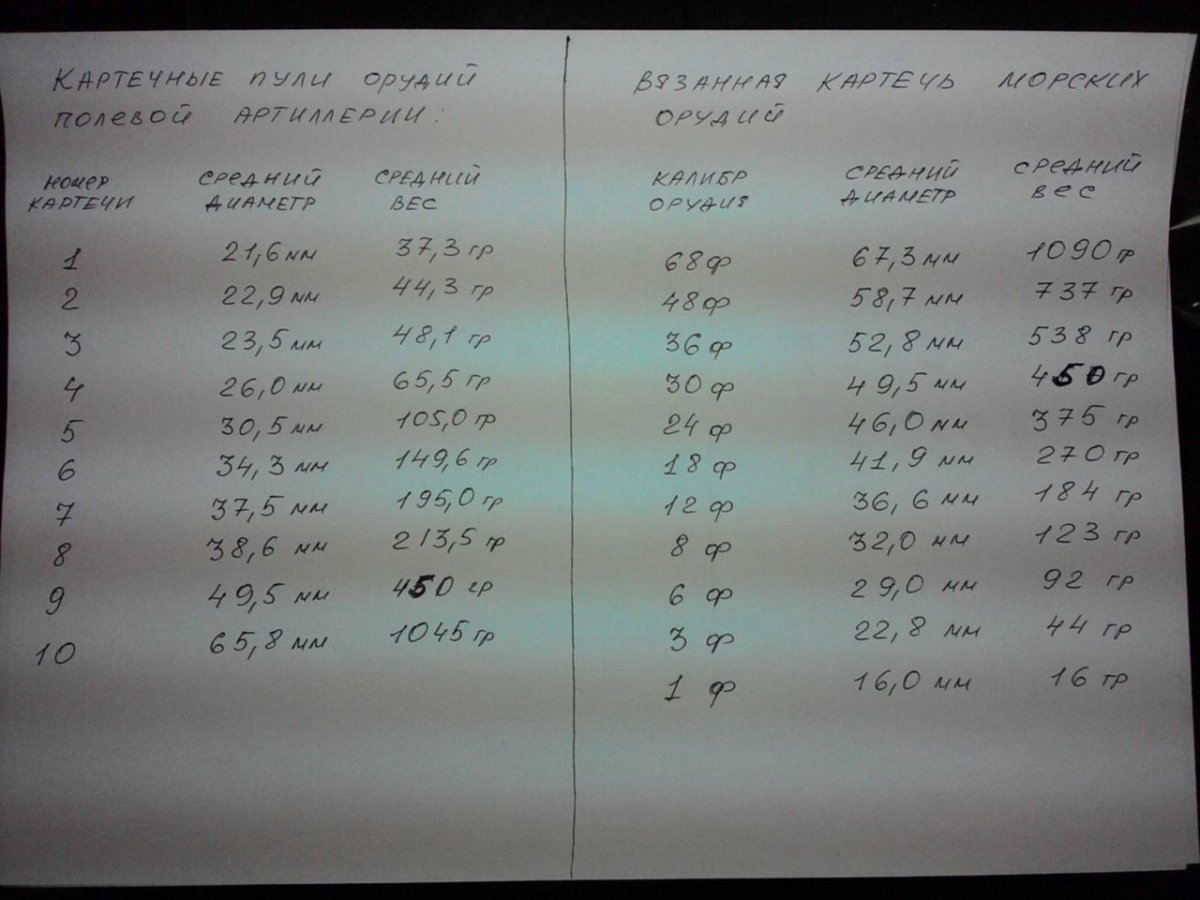 КАРТЕЧНЫЕ ПУЛИ ОРУДИЙ
ПОЛЕВОЙ АРТИЛЛЕРИИ:
НОМЕР КАРТЕЧИ СРЕДНИЙ ДИАМЕТР СРЕДНИЙ ВЕС
1 21,6 мм 37,3 гр
2 22,9 мм 44,3 гр
3 23,5 мм 48,1 гр
4 26,0 мм 65,5 гр
5 30,5 мм 105,0 гр
6 34,3 мм 149,6 гр
7 37,5 мм 195,0 гр
8 38,6 мм 213,5 гр
9 49,5 мм 450 гр
10 65,8 мм 1045 гр
ВЯЗАННАЯ КАРТЕЧЬ МОРСКИХ
ОРУДИЙ
КАЛИБР ОРУДИЯ СРЕДНИЙ ДИАМЕТР СРЕДНИЙ ВЕС
68 ф 67,3 мм 1090 гр
48 ф 58,7 мм 737 гр
36 ф 52,8 мм 538 гр
30 ф 49,5 мм 450 гр
24 ф 46,0 мм 375 гр
18 ф 41,9 мм 270 гр
12 ф 36,6 мм 184 гр
8 ф 32,0 мм 123 гр
6 ф 29,0 мм 92 гр
3 ф 22,8 мм 44 гр
1 ф 16,0 мм 16 гр